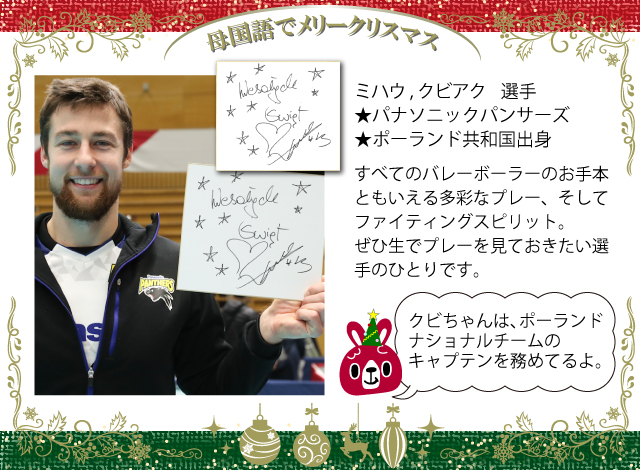 母国語でメリークリスマス
Wesołych
Świąt
ミハウ,クビアク 選手
★パナソニックパンサーズ
★ポーランド共和国出身
Wesołych
Świąt
すべてのバレーボーラーのお手本
ともいえる多彩なプレー、そして
ファイティングスピリット。
ぜひ生でプレーを見ておきたい選
手のひとりです。
PANTHERS
クビちゃんは、ポーランド
ナショナルチームの
キャプテンを務めてるよ。